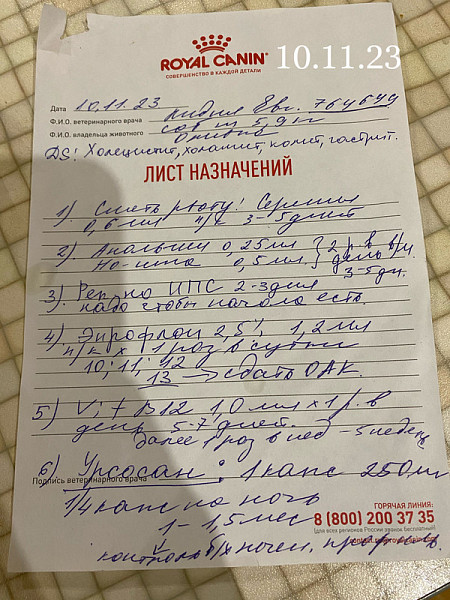 ROYAL CANIN
10.11.23
СОВЕРШЕНСТВО В КАЖДОЙ ДЕТАЛИ
Дата 10.11.23
Ф.И.О. ветеринарного врача
Ф.И.О. владельца животного
DS! Холецистит, холангит, колит, гастрит.
ЛИСТ НАЗНАЧЕНИЙ
1) Снять рвоту! Серения
0,6 мл п/к 3-5 дней
2) Анальгин 0,25 мл } 2 р. в
Но-шпа 0,5 мл. } день в/м.
3-5 дн.
3) ИПС 2-3 дня
надо чтобы начала есть.
4) Энрофлон 2,5% 1,2 мл
п/к х 1 раз в сутки
10; 11; 12
13 → сдать ОАК.
5) Vit B12 1,0 мл х 1 р. в
день 5-7 дней.
Далее 1 раз в нед - 5 недель
6) Урсосан: 1 капс 250 мг
Подпись ветеринарного врача
1/4 капс на ночь
1 - 1,5 мес
ГОРЯЧАЯ ЛИНИЯ:
8 (800) 200 37 35
(для всех регионов России звонок бесплатный)
контроль б/х